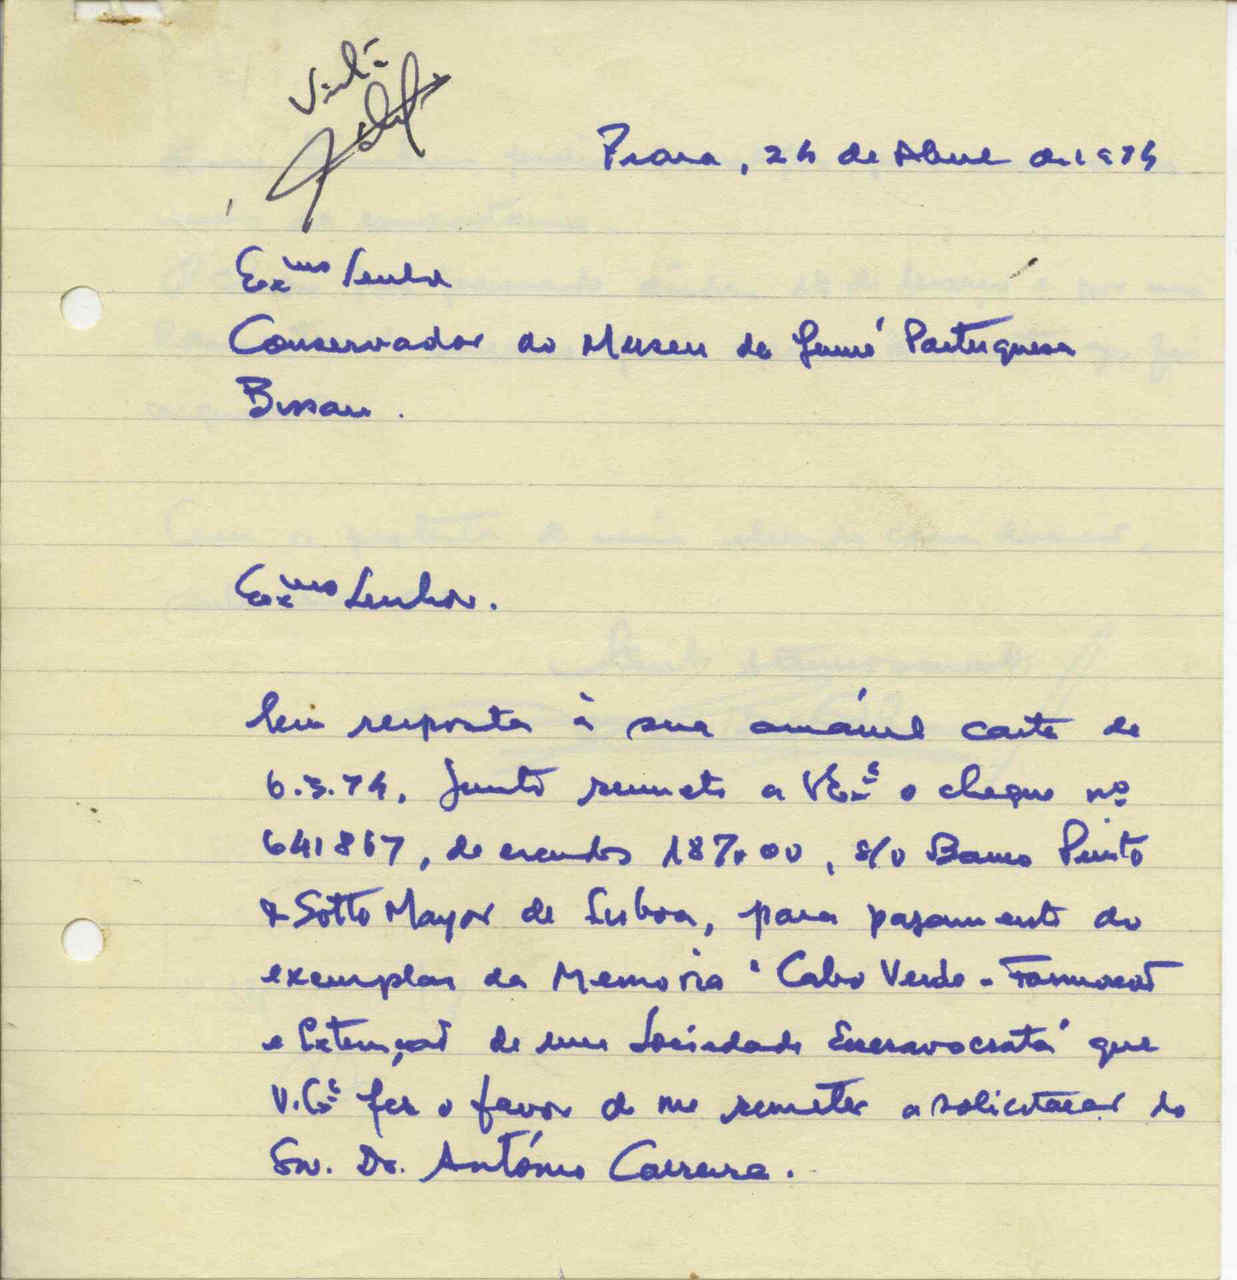 Visto
Praia, 24 de Abril de 1974
Exmo Senhor
Conservador do Museu da Guiné Portuguesa
Bissau.
Exmo Senhor.
Em resposta à sua amável carta de
6.3.74, junto remeto a VExª o cheque nº
641867, de escudos 187.00, s/o Banco Pinto
& Sotto Mayor de Lisboa, para pagamento do
exemplar da Memoria "Cabo Verde - Formação
e Extinção de uma Sociedade Escravocrata" que
V.Exª fez o favor de me remeter a solicitação do
Snr. Dr. António Carreira.